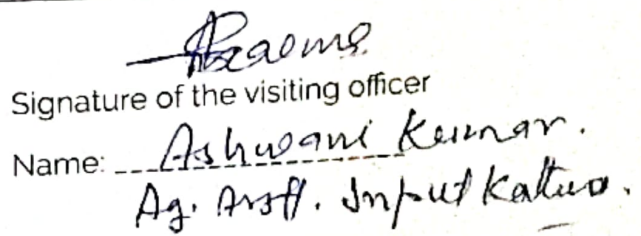 Signature of the visiting officer
Name: Ashwani Kumar.
Ag. Asstt. Input Kathua.